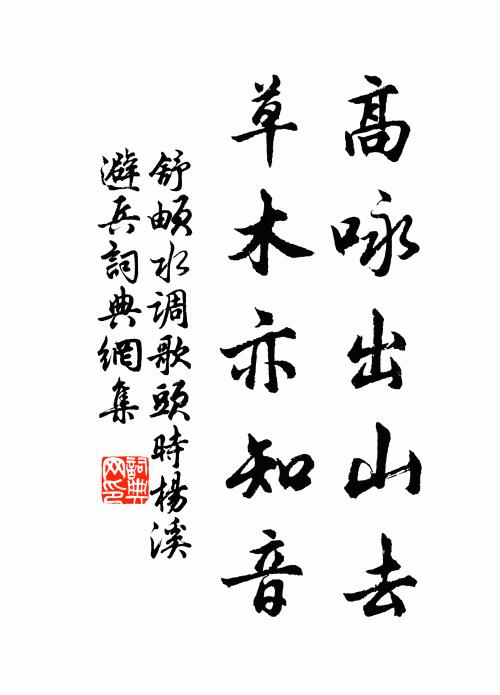 高咏出山去
草木亦知音
舒頔水調歌頭時楊溪
避兵詞典網集
詞典
网印